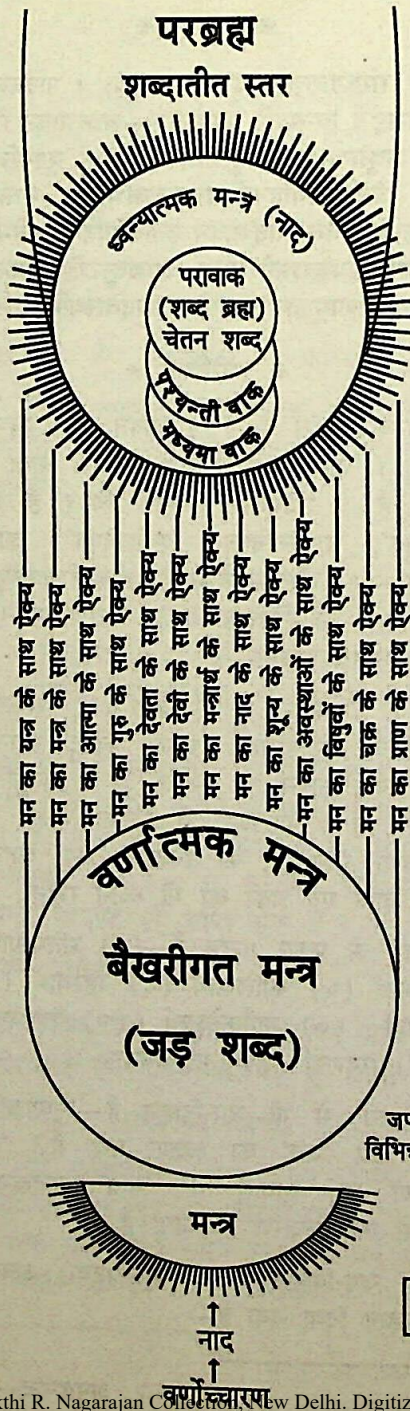 परब्रह्म
शब्दातीत स्तर
ध्वन्यात्मक मन्त्र (नाद)
परावाक
(शब्द ब्रह्म)
चेतन शब्द
पश्यन्ती वाक
मध्यमा वाक
मन का यन्त्र के साथ ऐक्य
मन का मन्त्र के साथ ऐक्य
मन का आत्मा के साथ ऐक्य
मन का गुरु के साथ ऐक्य
मन का देवता के साथ ऐक्य
मन का देवी के साथ ऐक्य
मन का मन्त्रार्थ के साथ ऐक्य
मन का नाद के साथ ऐक्य
मन का शून्य के साथ ऐक्य
मन का अवस्थाओं के साथ ऐक्य
मन का विषुवों के साथ ऐक्य
मन का चक्र के साथ ऐक्य
मन का प्राण के साथ ऐक्य
वर्णात्मक मन्त्र
बैखरीगत मन्त्र
(जड़ शब्द)
मन्त्र
नाद
वर्णोच्चारण
kthi R. Nagarajan Collection, New Delhi. Digitiz